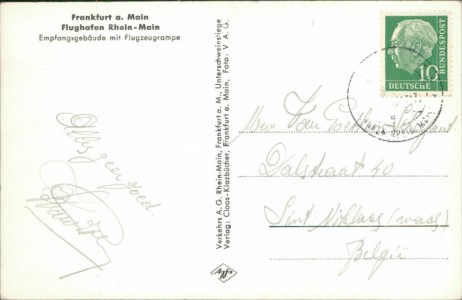 Frankfurt a. Main
Flughafen Rhein-Main
Empfangsgebäude mit Flugzeugrampe
10
BUNDESPOST
DEUTSCHE
Verkehrs A. G. Rhein-Main, Frankfurt a. M., Unterschweinstiege
Verlag: Claas-Klozbücher, Frankfurt a. Main, Foto: V A G.
Alles zeer goed
Mevr Van
Dalstraat 40
Sint Niklaas (Waas)
België
Agfa